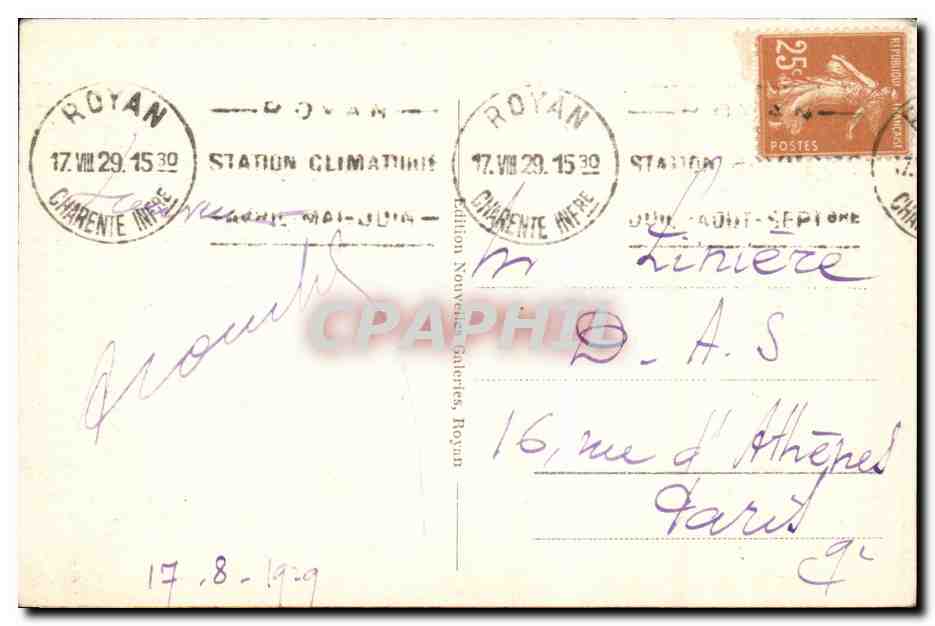 ROYAN
17.VIII 29. 15 30
CHARENTE INFRE
ROYAN
STATION CLIMATIQUE
AVRIL-MAI-JUIN
ROYAN
17.VIII 29. 15 30
CHARENTE INFRE
STATION
JUIL-AOUT-SEPTBRE
REPUBLIQUE FRANÇAISE
25c
POSTES
17.
CHA
Edition Nouvelles Galeries, Royan
CPAPHIL
M Linière
D. A. S
16, rue d'Athènes
Paris
9e
17.8.1929